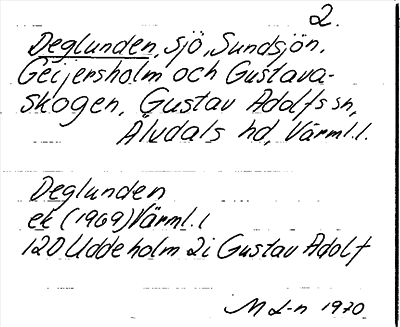 2.
Deglunden, sjö, Sundsjön,
Geijersholm och Gustava-
skogen, Gustav Adolfs sn,
Älvdals hd, Värml. l.
Deglunden
ek (1969) Värml. l
120 Uddeholm 2i Gustav Adolf
M L-n 1970